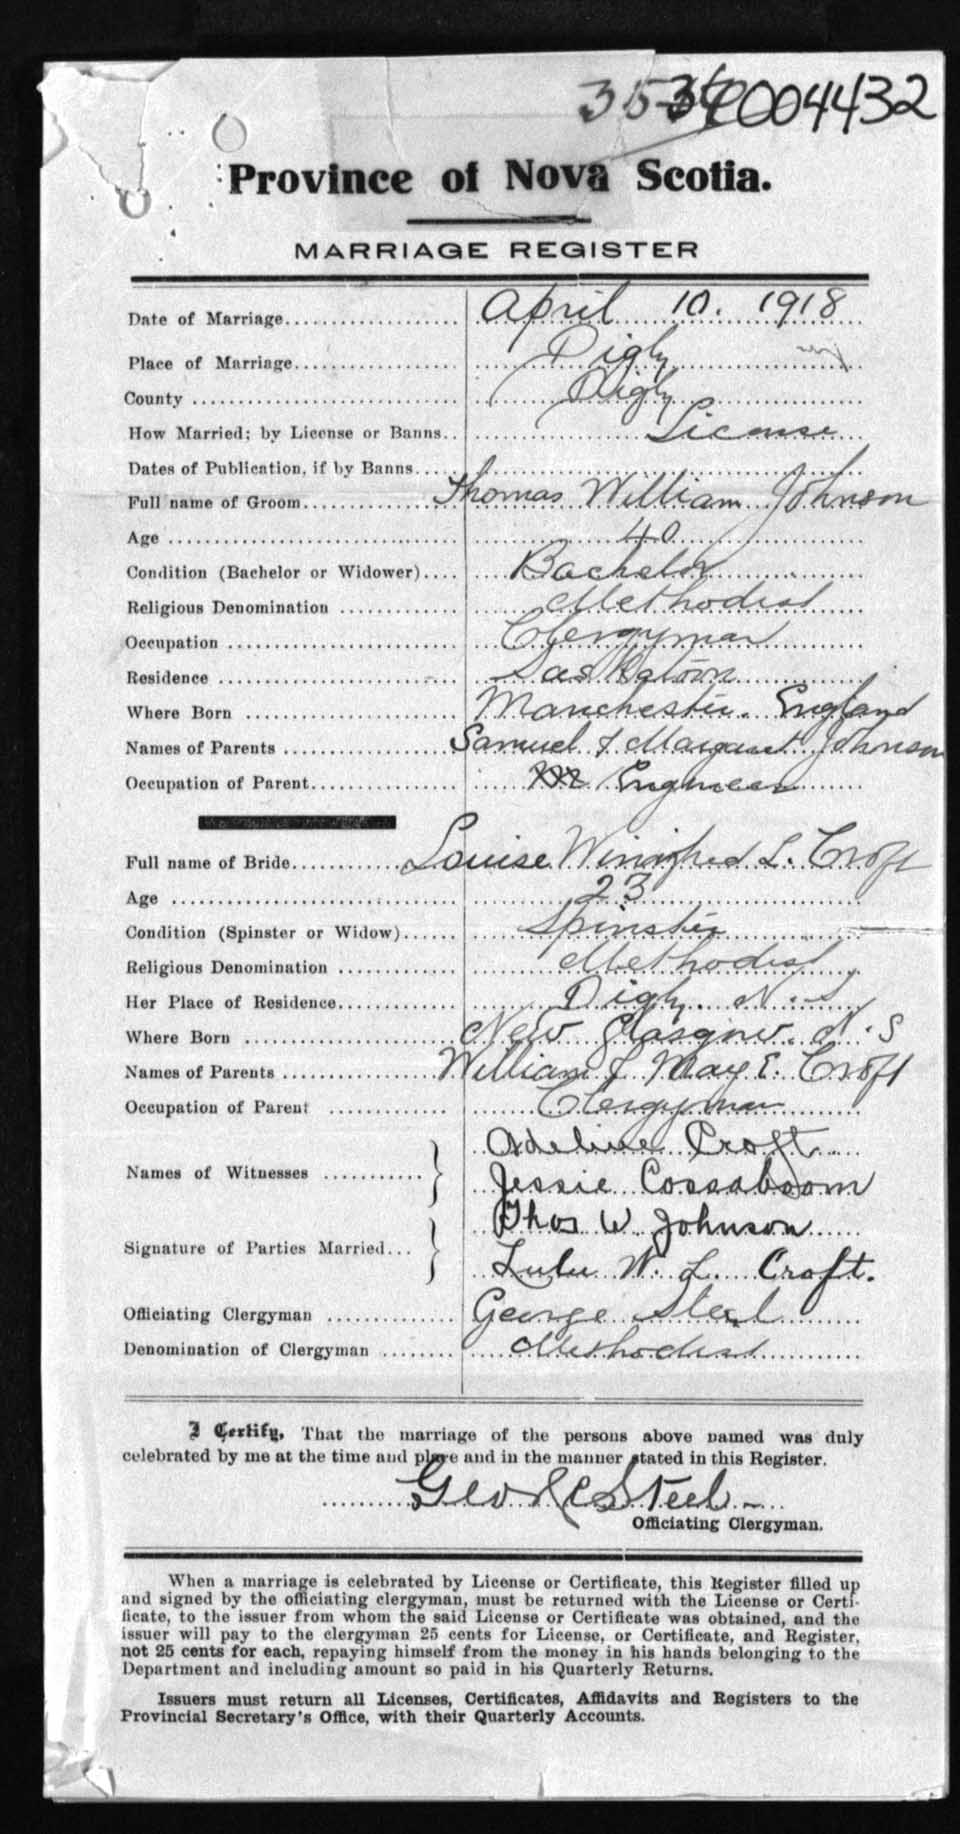 004432
Province of Nova Scotia.
MARRIAGE REGISTER
Date of Marriage April 10. 1918
Place of Marriage Digby
County Digby
How Married; by License or Banns License
Dates of Publication, if by Banns
Full name of Groom Thomas William Johnson
Age 40
Condition (Bachelor or Widower) Bachelor
Religious Denomination Methodist
Occupation Clergyman
Residence Saskatoon
Where Born Manchester. England
Names of Parents Samuel & Margaret Johnson
Occupation of Parent Engineer
Full name of Bride Louise Winifred L. Croft
Age 23
Condition (Spinster or Widow) Spinster
Religious Denomination Methodist
Her Place of Residence Digby. N.S
Where Born New Glasgow. N.S
Names of Parents William J May E. Croft
Occupation of Parent Clergyman
Names of Witnesses Adeline Croft
Jessie Cossaboom
Signature of Parties Married Thos W Johnson
Lulu W. L. Croft.
Officiating Clergyman George Steel
Denomination of Clergyman Methodist
I Certify, That the marriage of the persons above named was duly
celebrated by me at the time and place and in the manner stated in this Register.
Geo Steel
Officiating Clergyman.
When a marriage is celebrated by License or Certificate, this Register filled up
and signed by the officiating clergyman, must be returned with the License or Certi-
ficate, to the issuer from whom the said License or Certificate was obtained, and the
issuer will pay to the clergyman 25 cents for License, or Certificate, and Register,
not 25 cents for each, repaying himself from the money in his hands belonging to the
Department and including amount so paid in his Quarterly Returns.
Issuers must return all Licenses, Certificates, Affidavits and Registers to the
Provincial Secretary's Office, with their Quarterly Accounts.